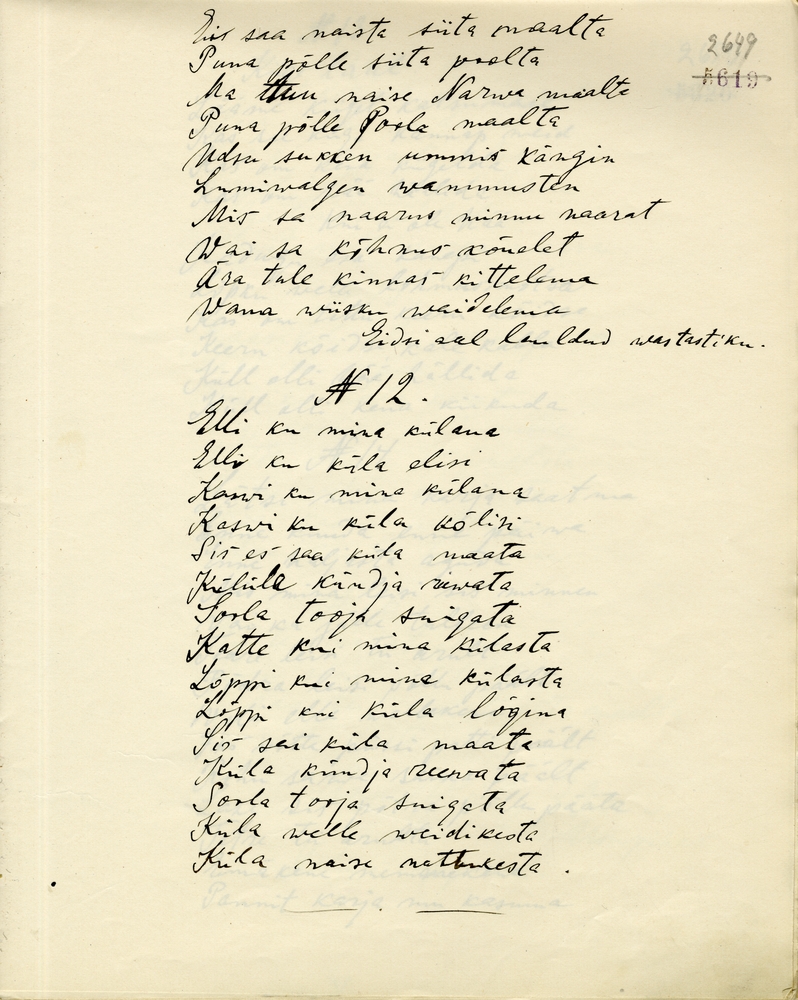 Eis saa naista siita maalta
2649
Puna põlle siita poolta
5619
Ma tuu naise Narwa maalta
Puna põlle Poola maalta
Udsu sukken ummis kängin
Lumiwalgen wammusten
Mis sa naarus minnu naarat
Wai sa kõhnus kõnelet
Ära tule kinnas kittelema
Wana wiisku waidelema
Eidsi aal lauldud wastastiku.
N 12.
Elli ku mina külana
Elli ku küla elisi
Kaswi ku mina külana
Kaswi ku küla kõlisi
Sis es saa küla maata
Külula kündja reewata
Soola tooja suigata
Katte kui mina külasta
Lõppi kui mina külasta
Lõppi kui küla lõgina
Sis sai küla maata
Küla kündja reewata
Soola tooja suigata
Küla welle weidikesta
Küla naise nattukesta.